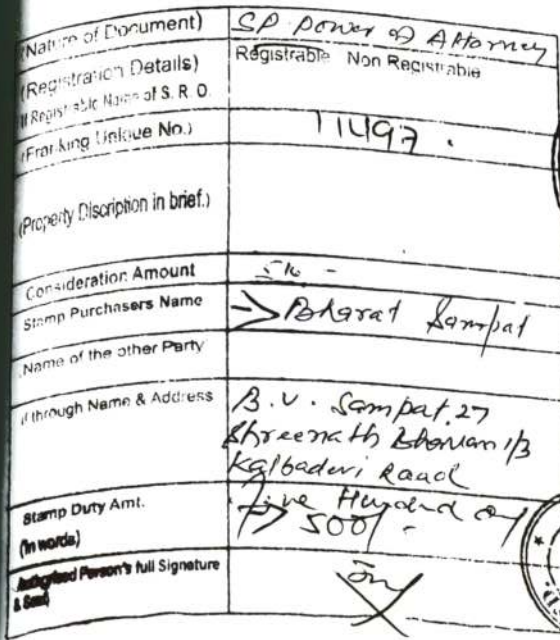 (Nature of Document) SP. power of Attorney
(Registration Details) Registrable Non Registrable
If Registrable Name of S. R. O.
(Franking Unique No.) 11497.
(Property Discription in brief.)
Consideration Amount
Stamp Purchasers Name → Bharat Sampat
Name of the other Party
if through Name & Address B. V. Sampat, 27
Shreenath Bhavan 1/3
Kalbadevi Road
Stamp Duty Amt. Five Hundred only
(In words) → 500/-
Authorised Person's full Signature
& Seal